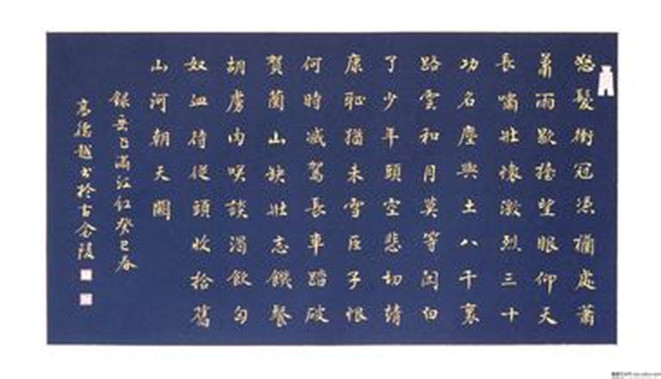 怒髮衝冠憑欄處蕭
蕭雨歇擡望眼仰天
長嘯壯懷激烈三十
功名塵與土八千裏
路雲和月莫等閑白
了少年頭空悲切靖
康恥猶未雪臣子恨
何時滅駕長車踏破
賀蘭山缺壯志饑餐
胡虜肉笑談渴飲匈
奴血待從頭收拾舊
山河朝天闕
錄岳飛滿江紅癸巳春
高德越書於古金陵